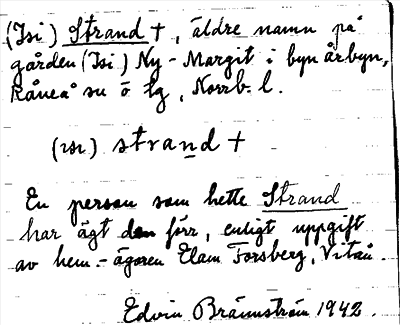 (Isi) Strand †, äldre namn på
gården (Isi) Ny-Margit i byn Årbyn,
Råneå sn ö tg, Norrb. l.
(ısı) strand †
En person som hette Strand
har ägt den förr, enligt uppgift
av hem.-ägaren Elam Forsberg, Vitåu.
Edvin Brännström 1942.